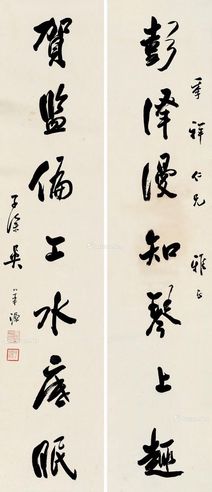 季祥仁兄 雅正
彭澤漫知琴上趣
賀監偏工水底眠
子深吳華源